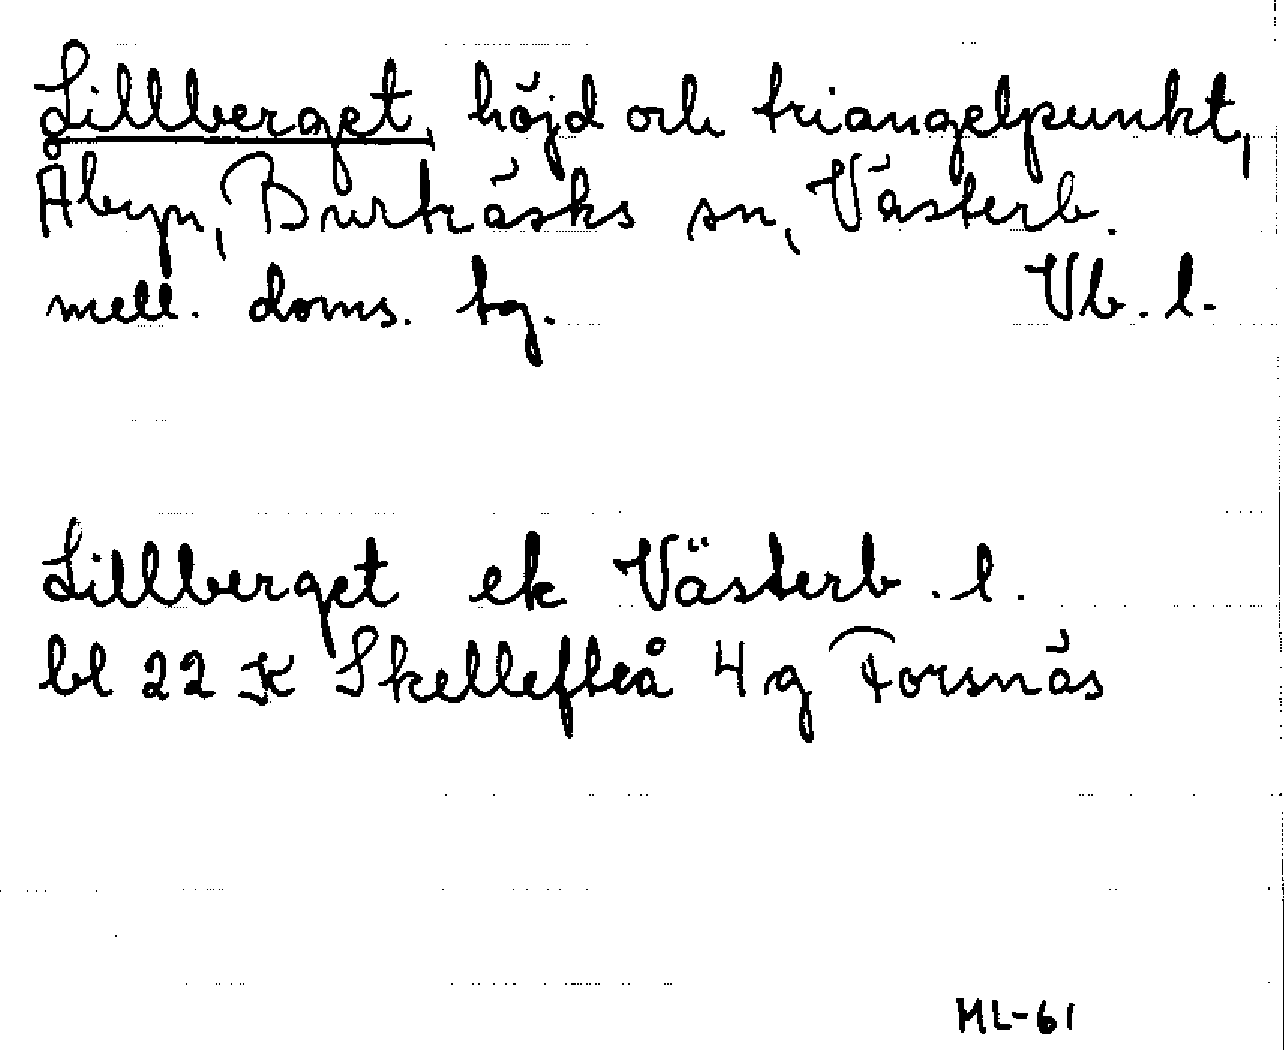 Lillberget, höjd och triangelpunkt,
Åbyn, Burträsks sn, Västerb.
mell. doms. tg. Vb. l.
Lillberget ek Västerb. l.
bl 22 K Skellefteå 4 g Forsnäs
ML-61